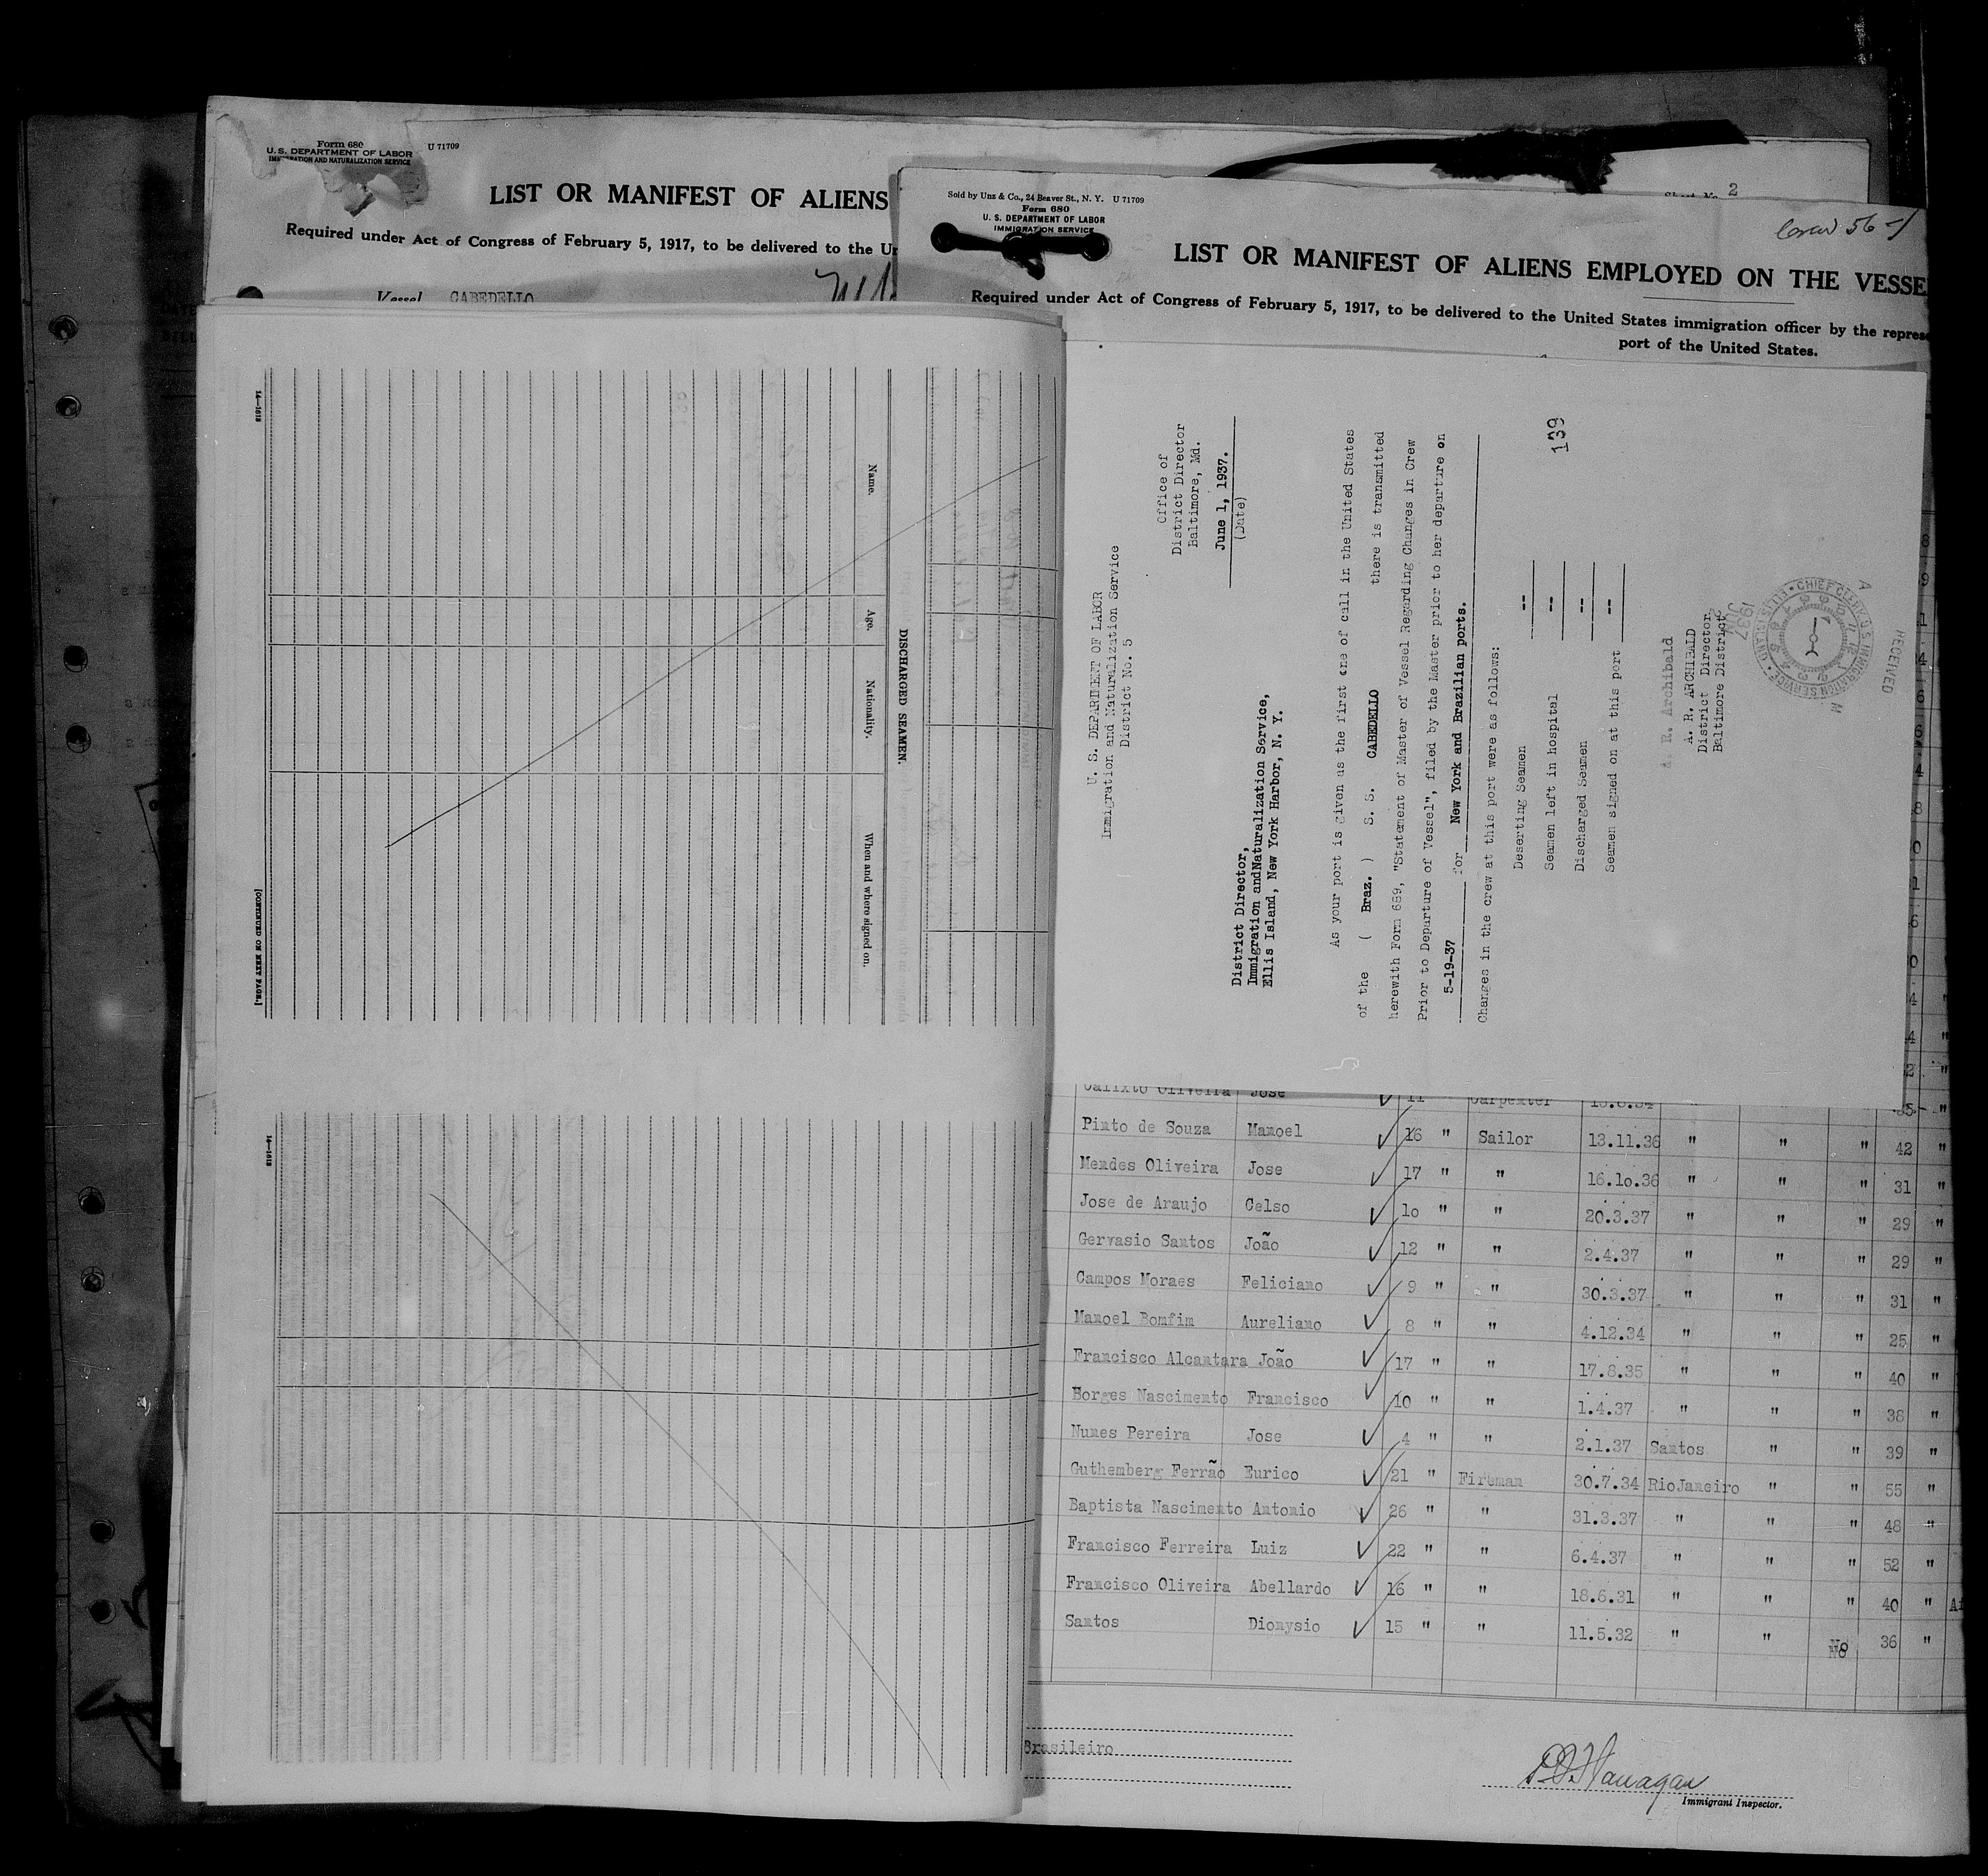 Form 680
U. S. DEPARTMENT OF LABOR
IMMIGRATION AND NATURALIZATION SERVICE
U 71709
LIST OR MANIFEST OF ALIENS
Required under Act of Congress of February 5, 1917, to be delivered to the
Vessel CABEDELLO
2
Sold by Unz & Co., 24 Beaver St., N. Y. U 71709
Form 680
U. S. DEPARTMENT OF LABOR
IMMIGRATION SERVICE
LIST OR MANIFEST OF ALIENS EMPLOYED ON THE VESSE
Required under Act of Congress of February 5, 1917, to be delivered to the United States immigration officer by the repres
port of the United States.
14—1613
[CONTINUED ON NEXT PAGE.]
DISCHARGED SEAMEN.
Name. Age. Nationality. When and where signed on.
14—1613
U. S. DEPARTMENT OF LABOR
Immigration and Naturalization Service
District No. 5
Office of
District Director
Baltimore, Md.
June 1, 1937.
(Date)
District Director,
Immigration andNaturalization Service,
Ellis Island, New York Harbor, N. Y.
As your port is given as the first one of call in the United States
of the ( Braz. ) S. S. CABEDELLO there is transmitted
herewith Form 689, "Statement of Master of Vessel Regarding Changes in Crew
Prior to Departure of Vessel", filed by the Master prior to her departure on
5-19-37 for New York and Brazilian ports.
Changes in the crew at this port were as follows:
Deserting Seamen --
Seamen left in hospital --
Discharged Seamen --
Seamen signed on at this port --
139
A. R. Archibald
A. R. ARCHIBALD
District Director,
Baltimore District
RECEIVED
CHIEF CLERK U.S. IMMIGRATION SERVICE ELLIS ISLAND
1937 JUN
Calixto Oliveira Jose 11 Carpenter
Pinto de Souza Manoel 16 " Sailor 13.11.36 " " " 42 "
Mendes Oliveira Jose 17 " " 16.1o.36 " " " 31 "
Jose de Araujo Celso 1o " " 20.3.37 " " " 29 "
Gervasio Santos João 12 " " 2.4.37 " " " 29 "
Campos Moraes Feliciano 9 " " 30.3.37 " " " 31 "
Manoel Bomfim Aureliano 8 " " 4.12.34 " " " 25 "
Francisco Alcantara João 17 " " 17.8.35 " " " 40 "
Borges Nascimento Francisco 10 " " 1.4.37 " " " 38 "
Nunes Pereira Jose 4 " " 2.1.37 Santos " " 39 "
Guthemberg Ferrão Eurico 21 " Fireman 30.7.34 RioJaneiro " " 55 "
Baptista Nascimento Antonio 26 " " 31.3.37 " " " 48 "
Francisco Ferreira Luiz 22 " " 6.4.37 " " " 52 "
Francisco Oliveira Abellardo 16 " " 18.6.31 " " " 40 "
Santos Dionysio 15 " " 11.5.32 " " No 36 "
Brasileiro
Immigrant Inspector.